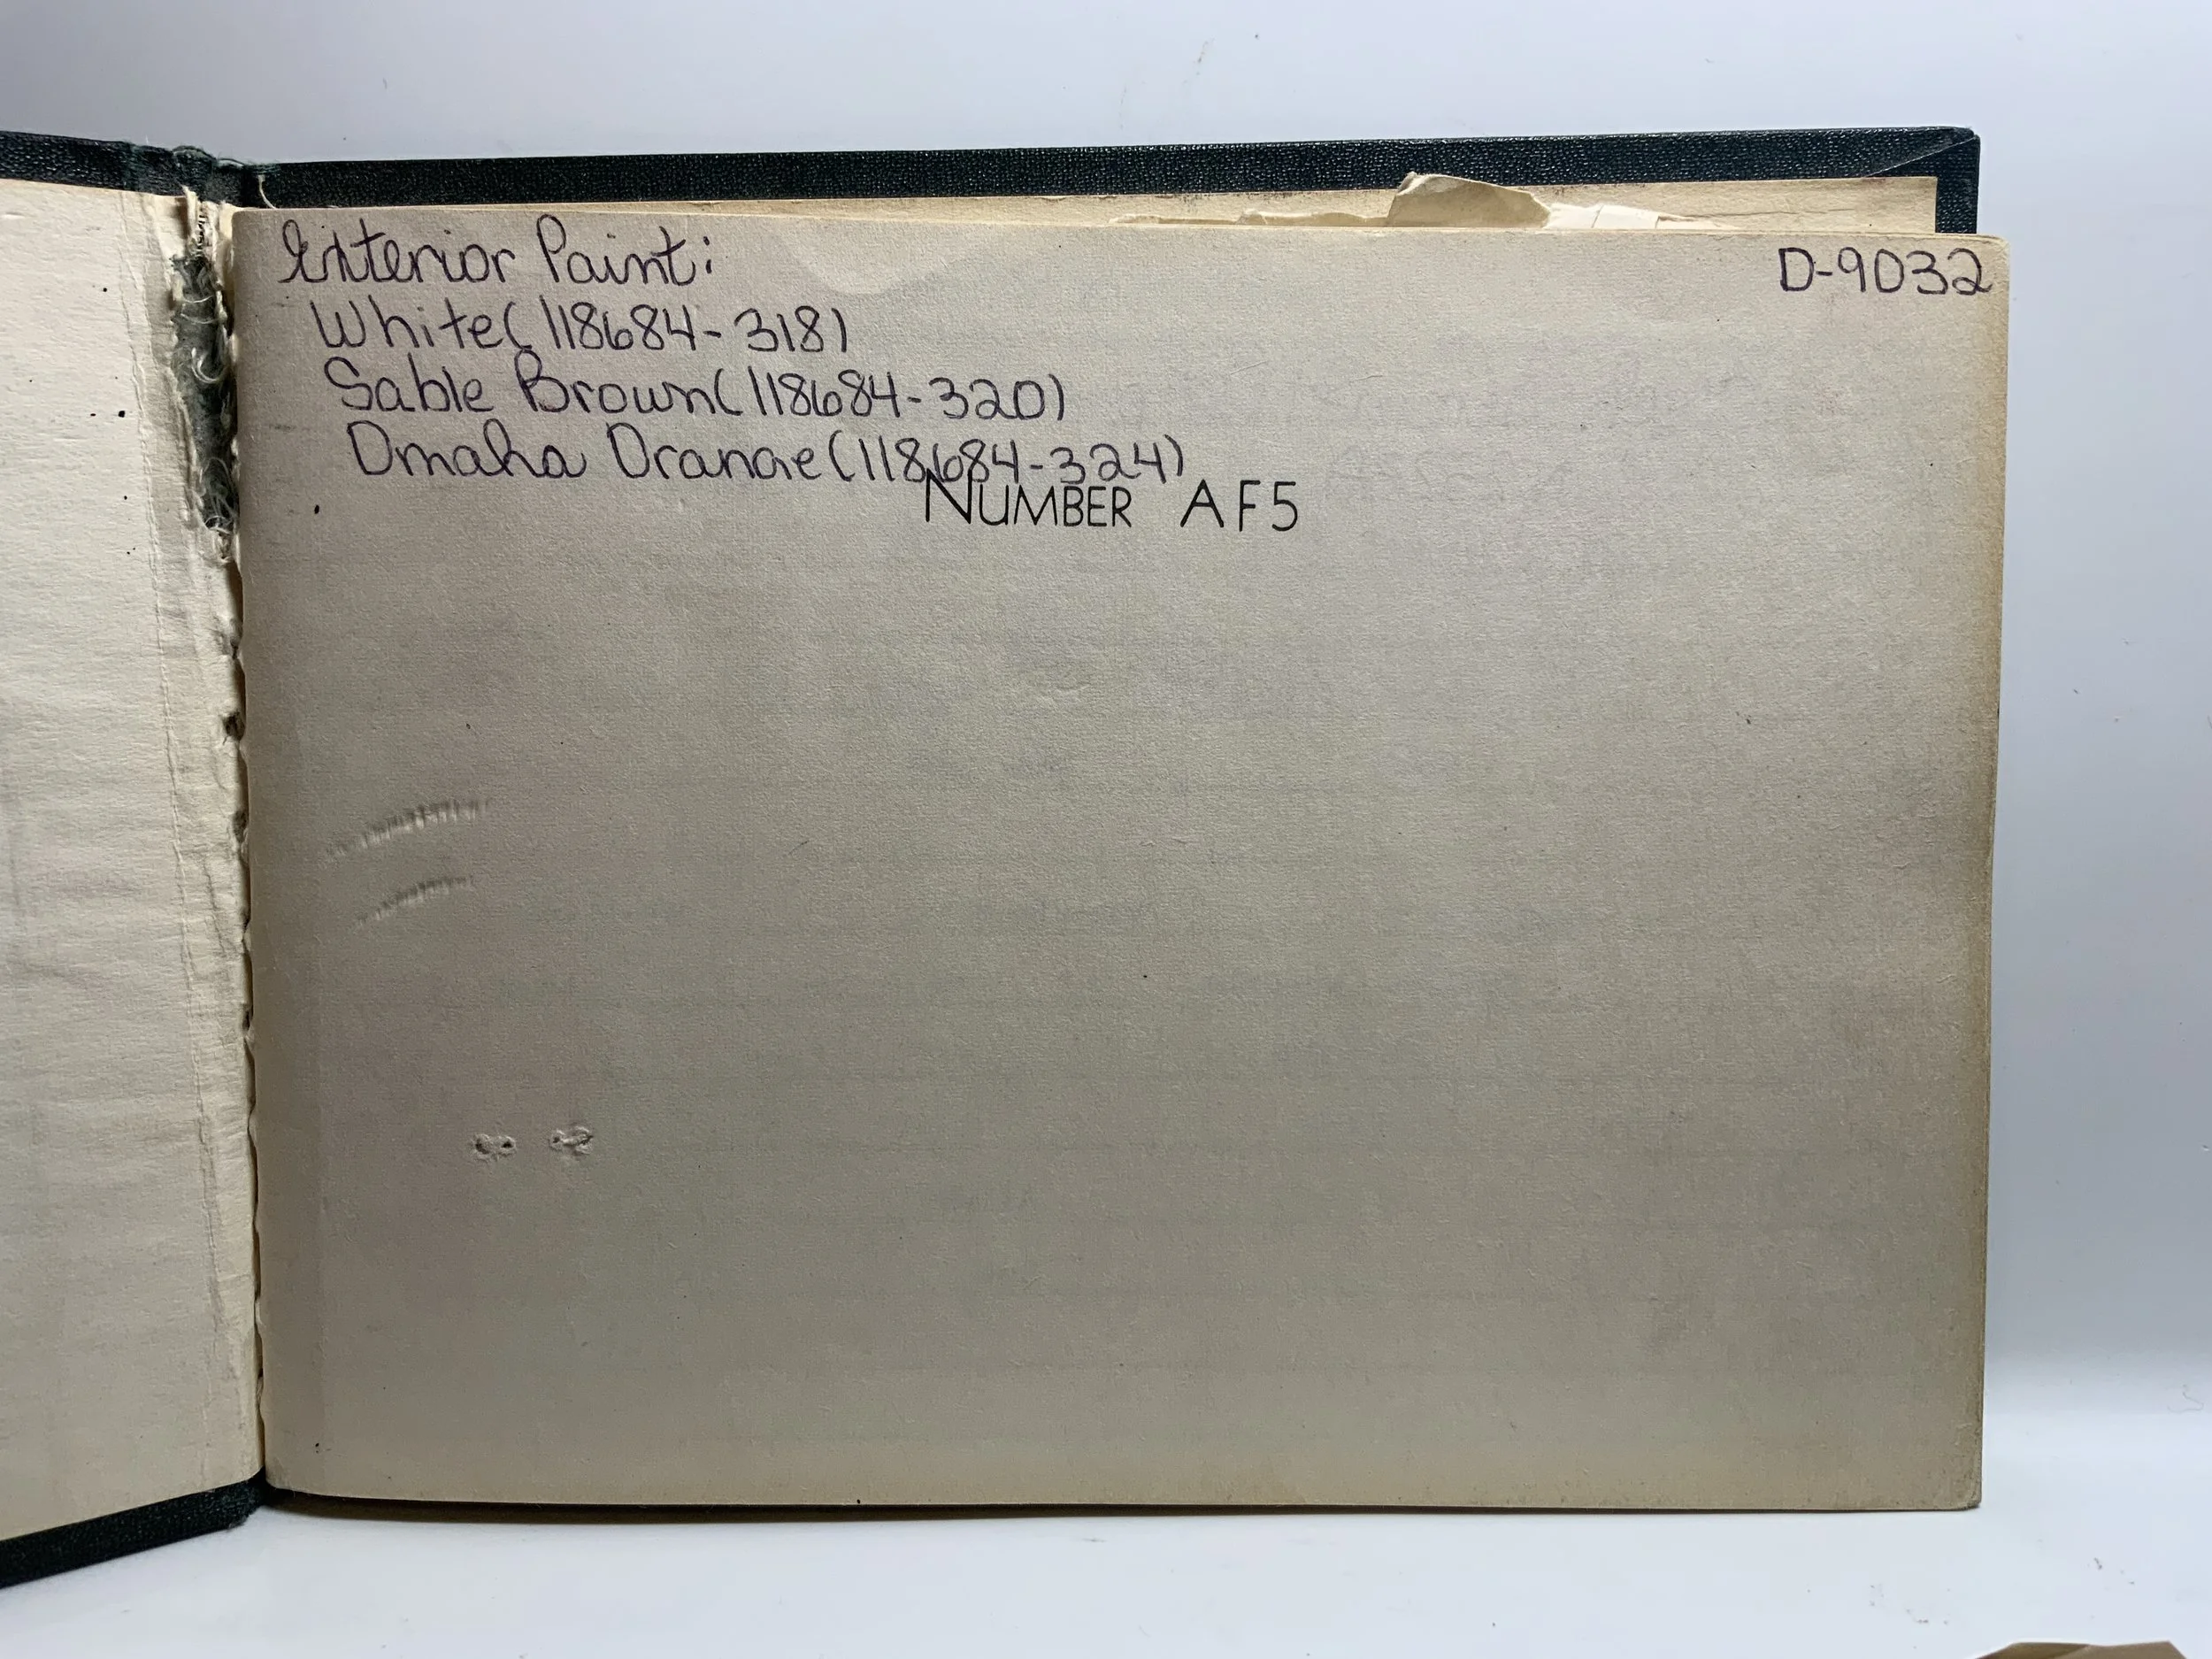 Exterior Paint:
D-9032
White(118684-318)
Sable Brown(118684-320)
Omaha Orange(118684-324)
NUMBER AF5